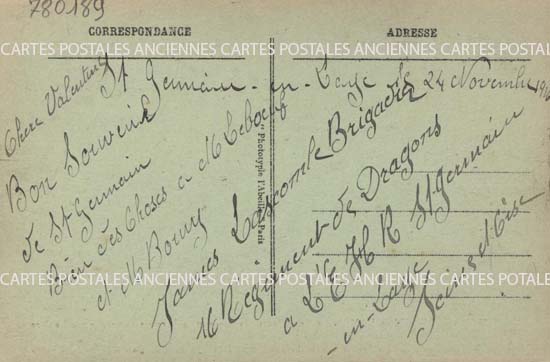 780189
CORRESPONDANCE
ADRESSE
CARTES POSTALES ANCIENNES CARTES POSTALES ANCIENNES CARTES POSTALES
St Germain-en-Laye le 24 Novembre
Chere Valentine
Bon Souvenir
de St Germain
Bien des choses a M Leboeuf
et M Bourny
James Lascombe Brigadier
16 Regiment de Dragons
a L'E H R St Germain
-en-Laye
Seine et Oise
"Phototypie l'Abeille" Paris
CARTES POSTALES ANCIENNES CARTES POSTALES ANCIENNES CARTES POSTALES